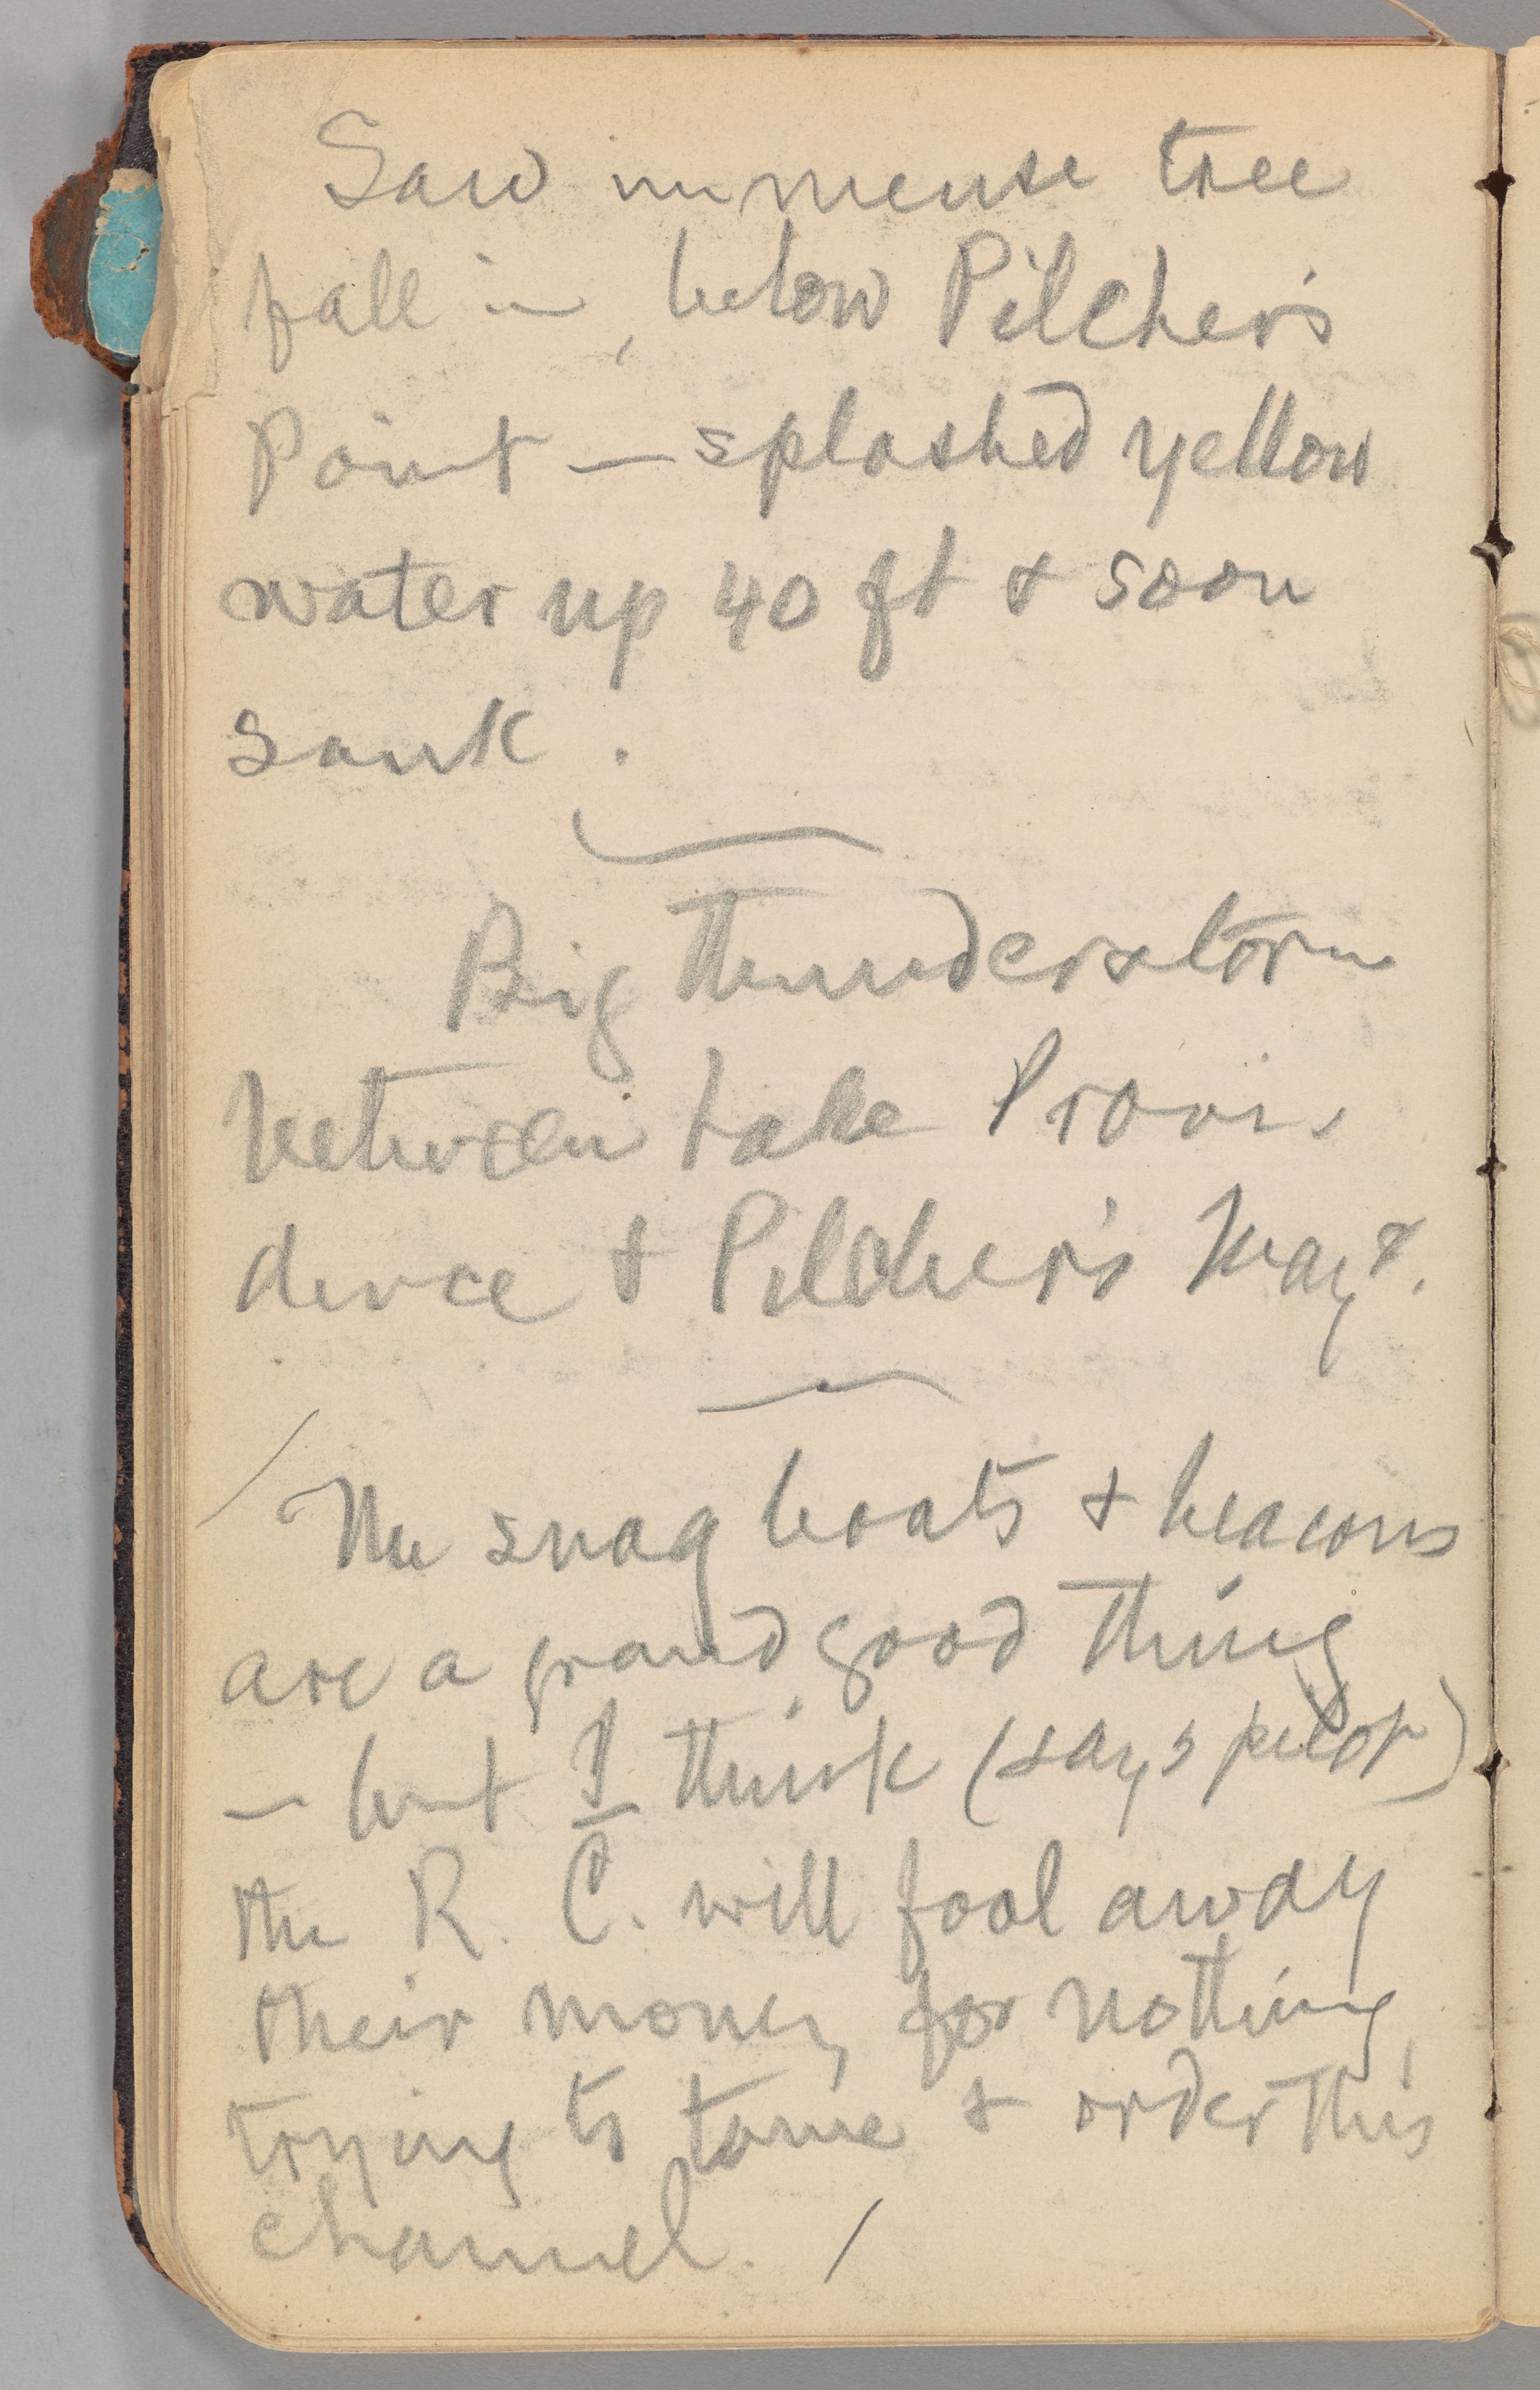 Saw immense tree
fall in, below Pilcher's
Point — splashed yellow
water up 40 ft & soon
sank.
Big thunderstorm
between Lake Provi-
dence & Pilcher's May 8.
The snag boats & beacons
are a grand good thing
— but I think (says pilot)
the R. C. will fool away
their money for nothing,
trying to tame & order this
channel. /